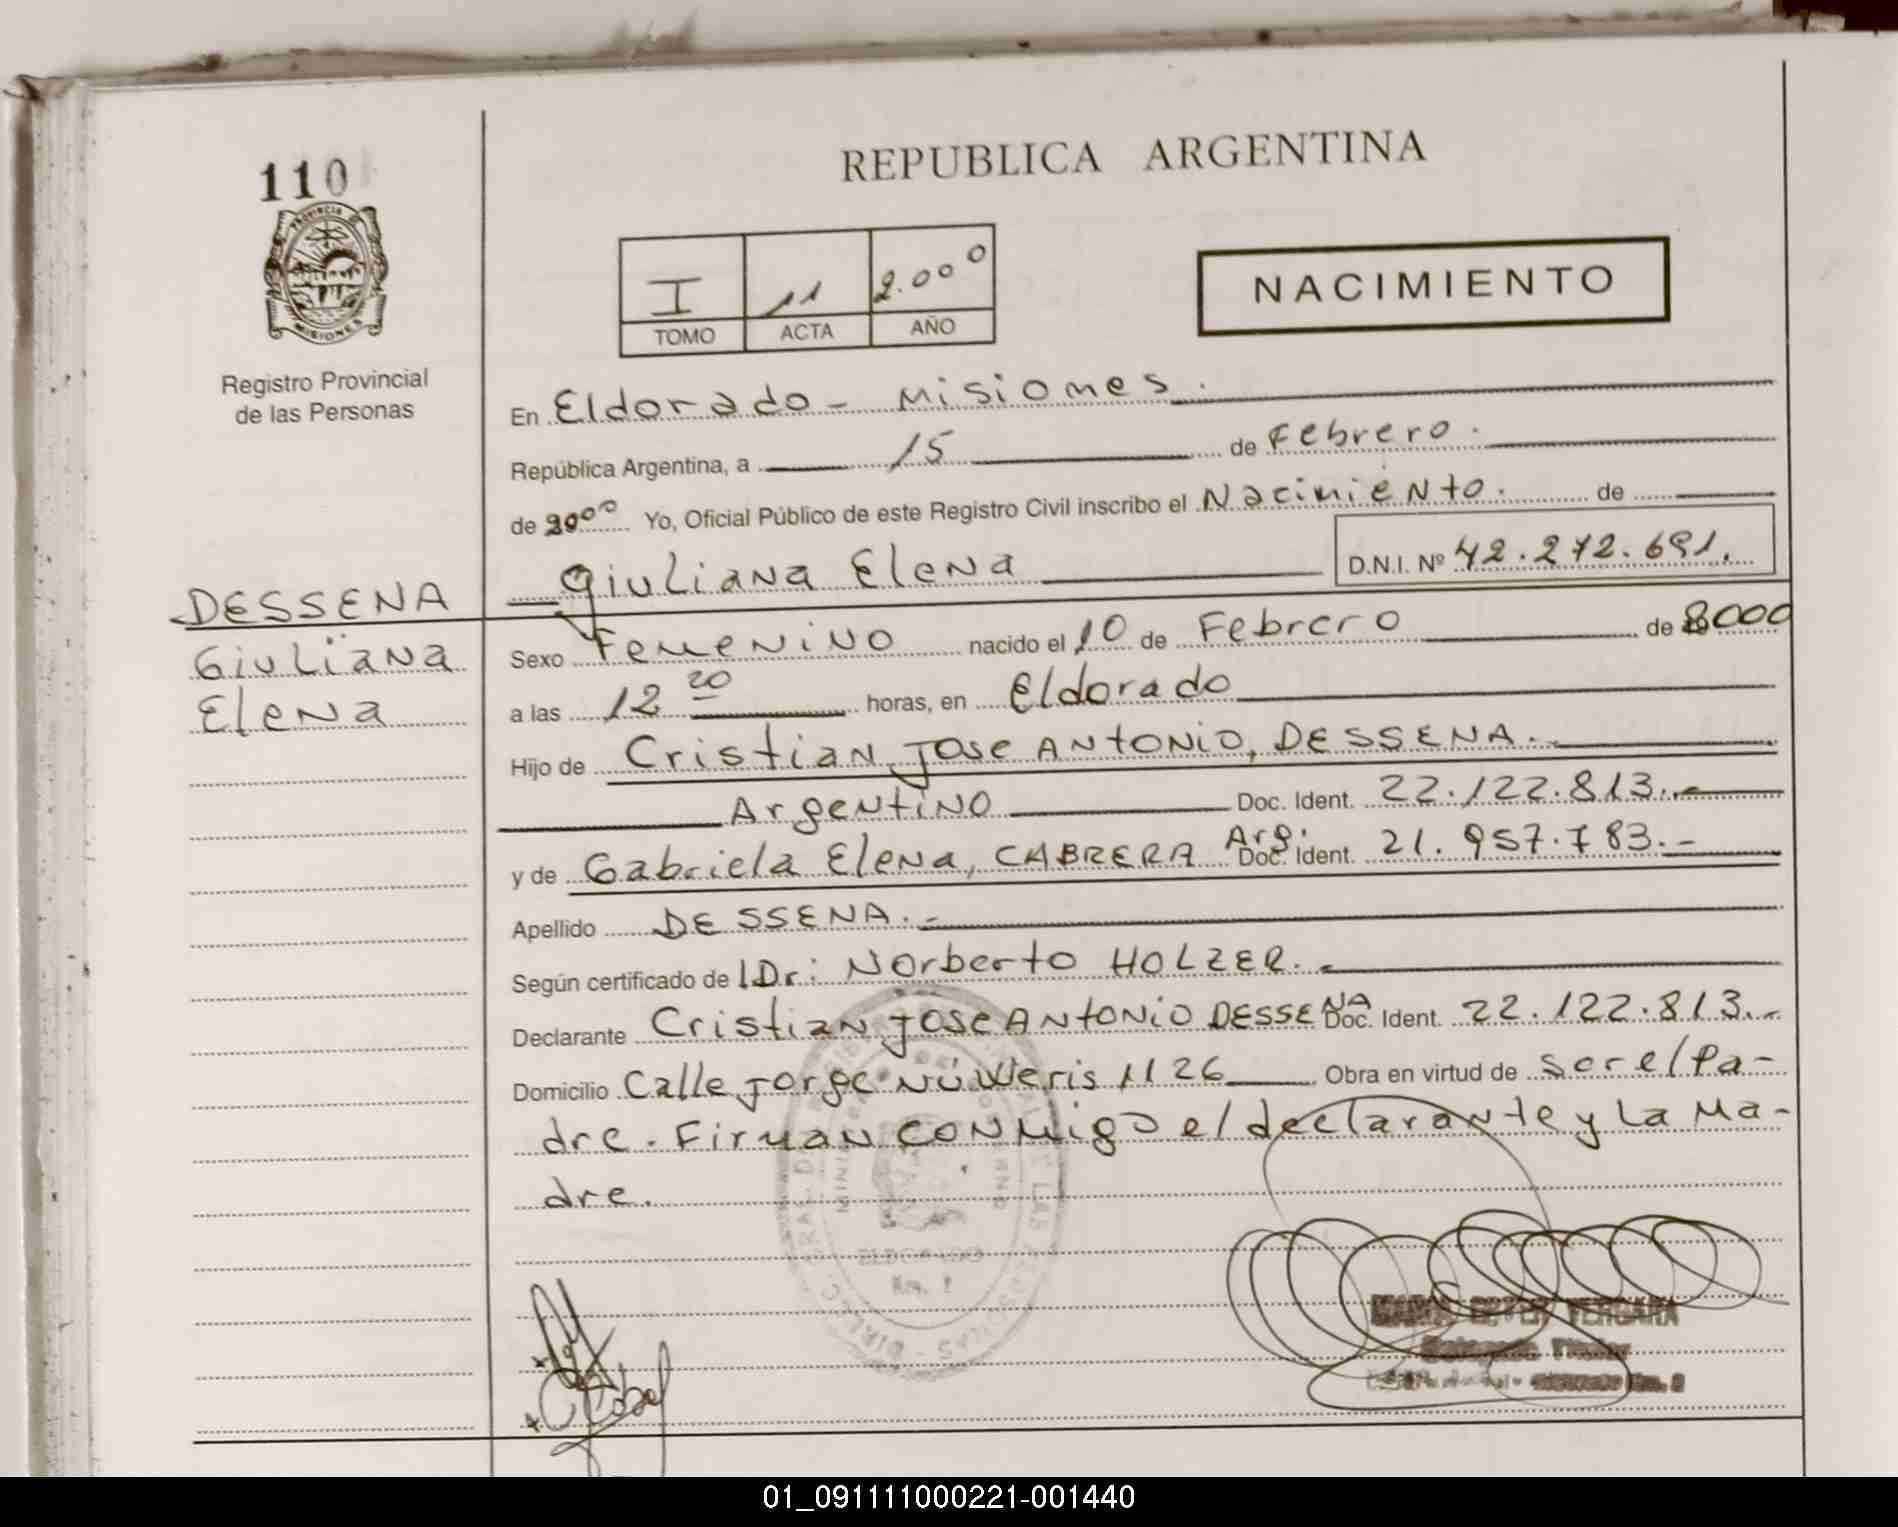 110
REPUBLICA ARGENTINA
PROVINCIA DE
MISIONES
Registro Provincial
de las Personas
I 11 2.000
TOMO ACTA AÑO
NACIMIENTO
En Eldorado - Misiones.
República Argentina, a 15 de Febrero.
de 2000 Yo, Oficial Público de este Registro Civil inscribo el Nacimiento. de
Giuliana Elena D.N.I. Nº 42.272.691.
DESSENA
Giuliana
Elena
Sexo Femenino nacido el 10 de Febrero de 2000
a las 12 20 horas, en Eldorado
Hijo de Cristian Jose ANTONIO, DESSENA.
Argentino Doc. Ident. 22.122.813.-
y de Gabriela Elena, CABRERA Arg. Doc. Ident. 21.957.783.-
Apellido DESSENA.-
Según certificado de Dr: Norberto HOLZER.-
Declarante Cristian Jose ANTONIO DESSENA Doc. Ident. 22.122.813.-
Domicilio Calle Jorge 1126 Obra en virtud de ser el Pa-
dre. Firman conmigo el declarante y la Ma-
dre.
ELDORADO
VERGARA
01_091111000221-001440